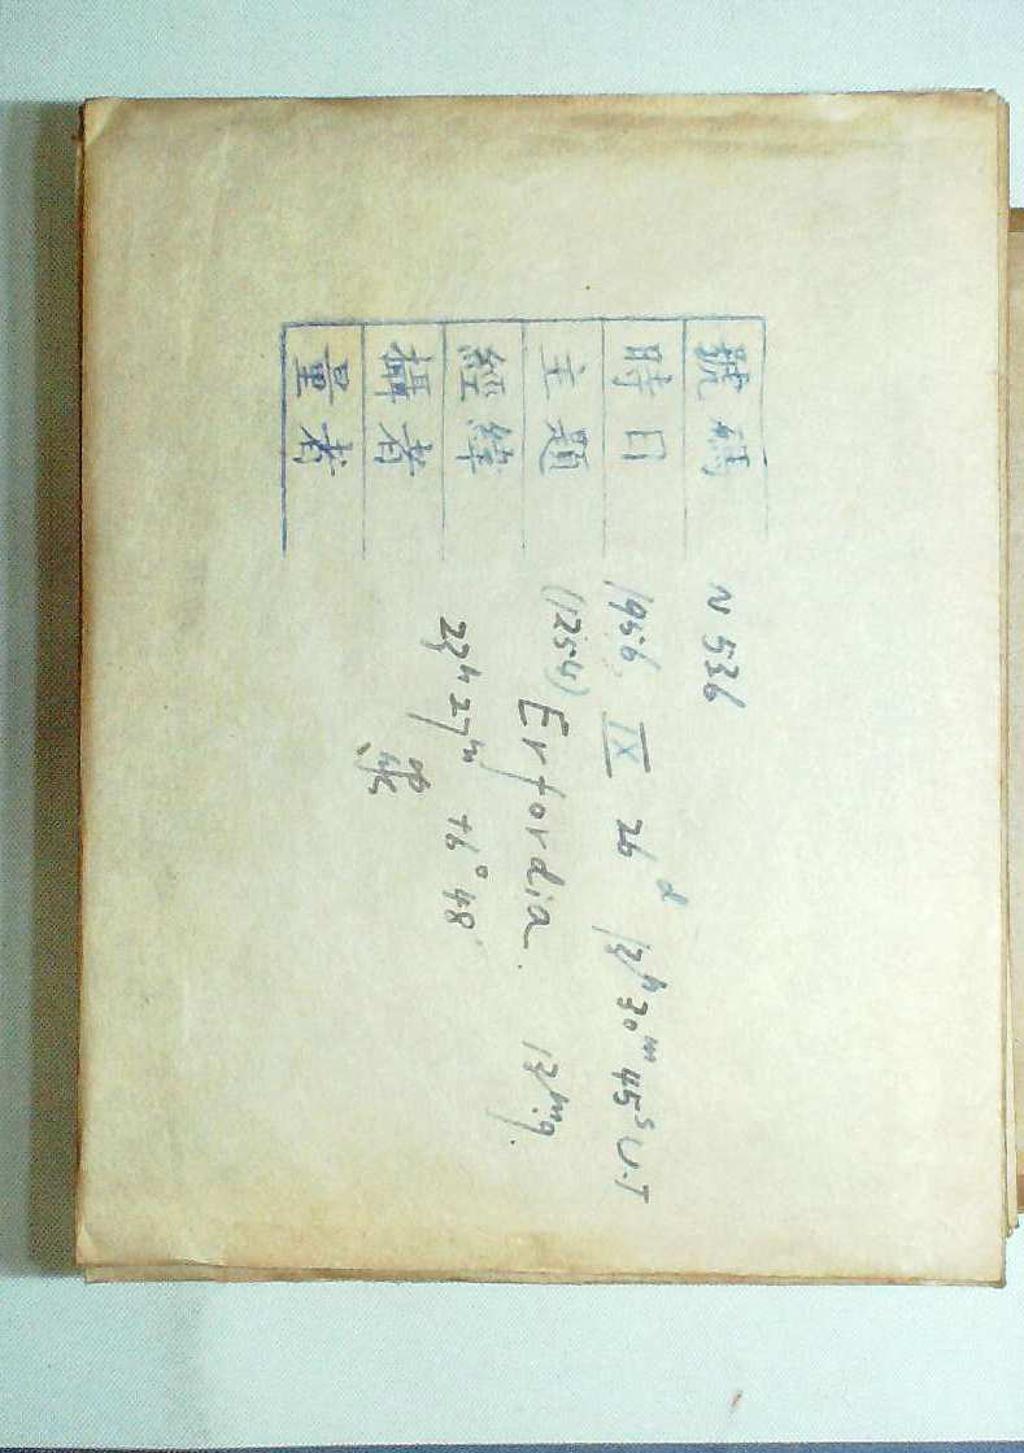 號碼 N 536
時日 1956 IX 26 d 13h 30m 45s U.T
主題 (1254) Erfordia. 13mg.
經緯 23h 27m +6° 48'
攝者
量者